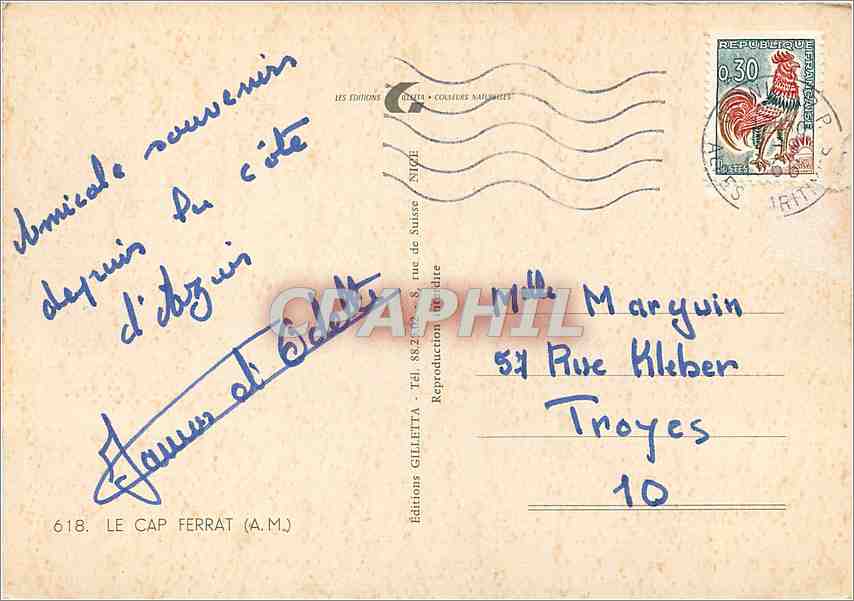 LES ÉDITIONS GILLETA • COULEURS NATURELLES
REPUBLIQUE FRANÇAISE
0,30
POSTES
Amicale souvenirs
depuis la côte
d'Azur
et Odette
Mlle Marguin
57 Rue Kleber
Troyes
10
618. LE CAP FERRAT (A.M.)
Éditions GILLETTA - Tél. 88.2 02 - 8, rue de Suisse NICE
Reproduction interdite
CPAPHIL